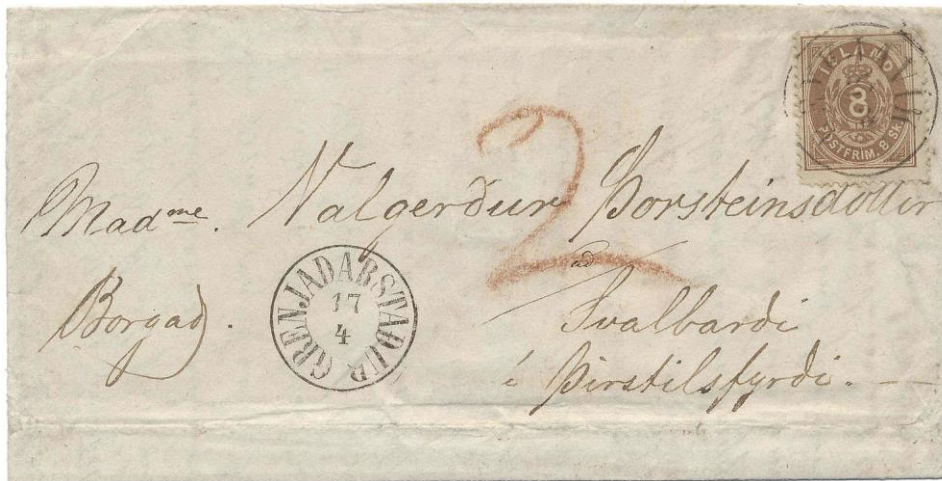 ISLAND
8
POSTFRIM. 8 SK
2
Madme. Valgerdur Þorsteinsdottir
ad
Borgad.
GRENJADARSTADUR
17
4
Svalbardi
í Þirstilsfyrdi.